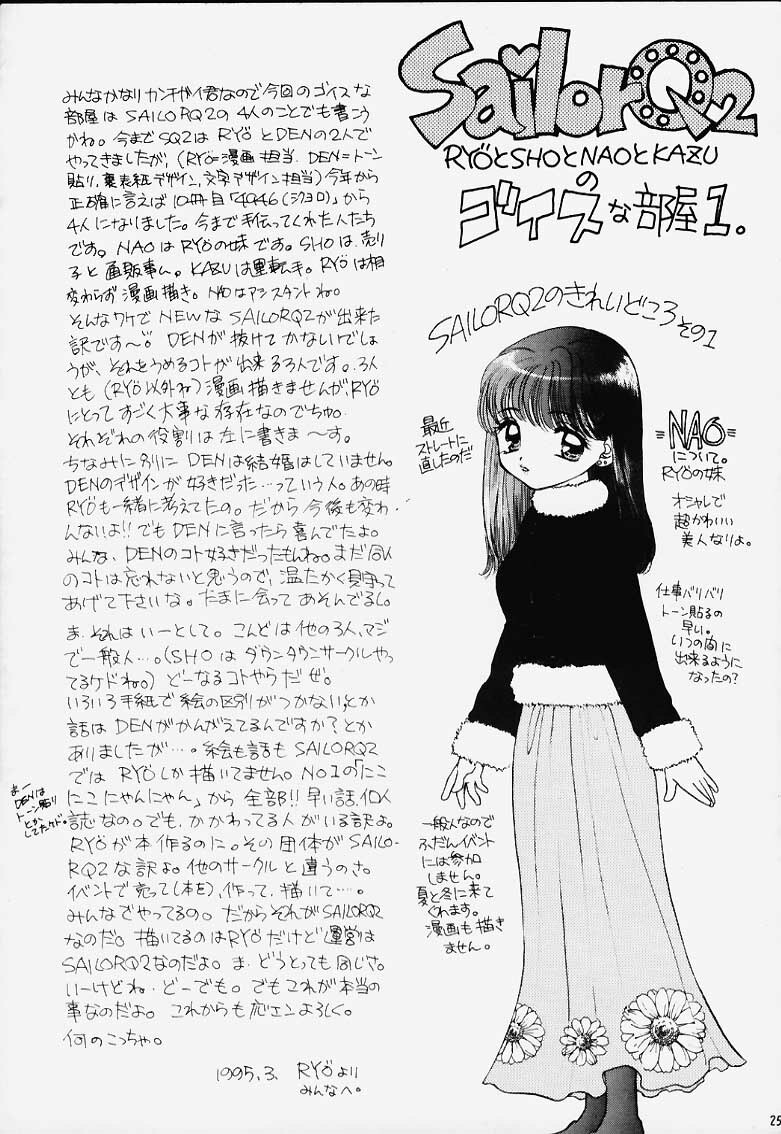 SailorQ2
RYÖとSHOとNAOとKAZU
の
ゴイスな部屋1.
みんなかなりカンチガイ君なので今回のゴイスな
部屋はSAILORQ2の4人のことでも書こう
かね。今までSQ2はRYÖとDENの2人で
やってきましたが、(RYÖ=漫画担当、DEN=トーン
貼り、裏表紙デザイン、文字デザイン担当)今年から
正確に言えば10冊目「4946(ショヨロ)」から
4人になりました。今まで手伝ってくれた人たち
です。NAOはRYÖの妹です。SHOは、売り
子と通販事ム。KAZUは運転手。RYÖは相
変わらず漫画描き。NAOはアシスタントね。
そんなワケでNEWなSAILORQ2が出来た
訳です〜。DENが抜けてかないでしょ
うが、それをうめるコトが出来る3人です。3人
とも(RYÖ以外ね)漫画描きませんが、RYÖ
にとってすごく大事な存在なのでちゅ。
それぞれの役割は左に書きま〜す。
ちなみに別にDENは結婚はしていません。
DENのデザインが好きだった…っていう人。あの時
RYÖも一緒に考えてたの。だから今後も変わ
んないよ!!でもDENに言ったら喜んでたよ。
みんな、DENのコト好きだったもんね。まだ同人
のコトは忘れないと思うので、温たかく見守って
あげて下さいな。たまに会ってあそんでるし。
ま、それはいーとして。こんどは他の3人、マジ
で一般人…。(SHOはダウンタウンサークルやっ
てるケドね。)どーなるコトやらだぜ。
いろいろ手紙で絵の区別がつかないとか
話はDENがかんがえてるんですか?とか
ありましたが…。絵も話もSAILORQ2
ではRYÖしか描いてません。NO1の「にこ
にこにゃんにゃん」から全部!!早い話、個人
誌なの。でも、かかわってる人がいる訳よ。
RYÖが本作るのに。その団体がSAILO-
RQ2な訳よ。他のサークルと違うのさ。
イベントで売って(本を)、作って、描いて…。
みんなでやってるの。だからそれがSAILORQ2
なのだ。描いてるのはRYÖだけど運営は
SAILORQ2なのだよ。ま、どうとっても同じさ。
いーけどね、どーでも。でもこれが本当の
事なのだよ。これからも応エンよろしく。
何のこっちゃ。
1995.3. RYÖより
みんなへ。
まー
DENは
トーン貼り
とか
してたケド。
SAILORQ2のきれいどころその1
最近
ストレートに
直したのだ
=NAO=
について。
RYÖの妹
オシャレで
超かわいい
美人なりよ。
仕事バリバリ
トーン貼るの
早い。
いつの間に
出来るように
なったの?
一般人なので
ふだんイベント
には参加
しません。
夏と冬に来て
くれます。
漫画も描き
ません。
25